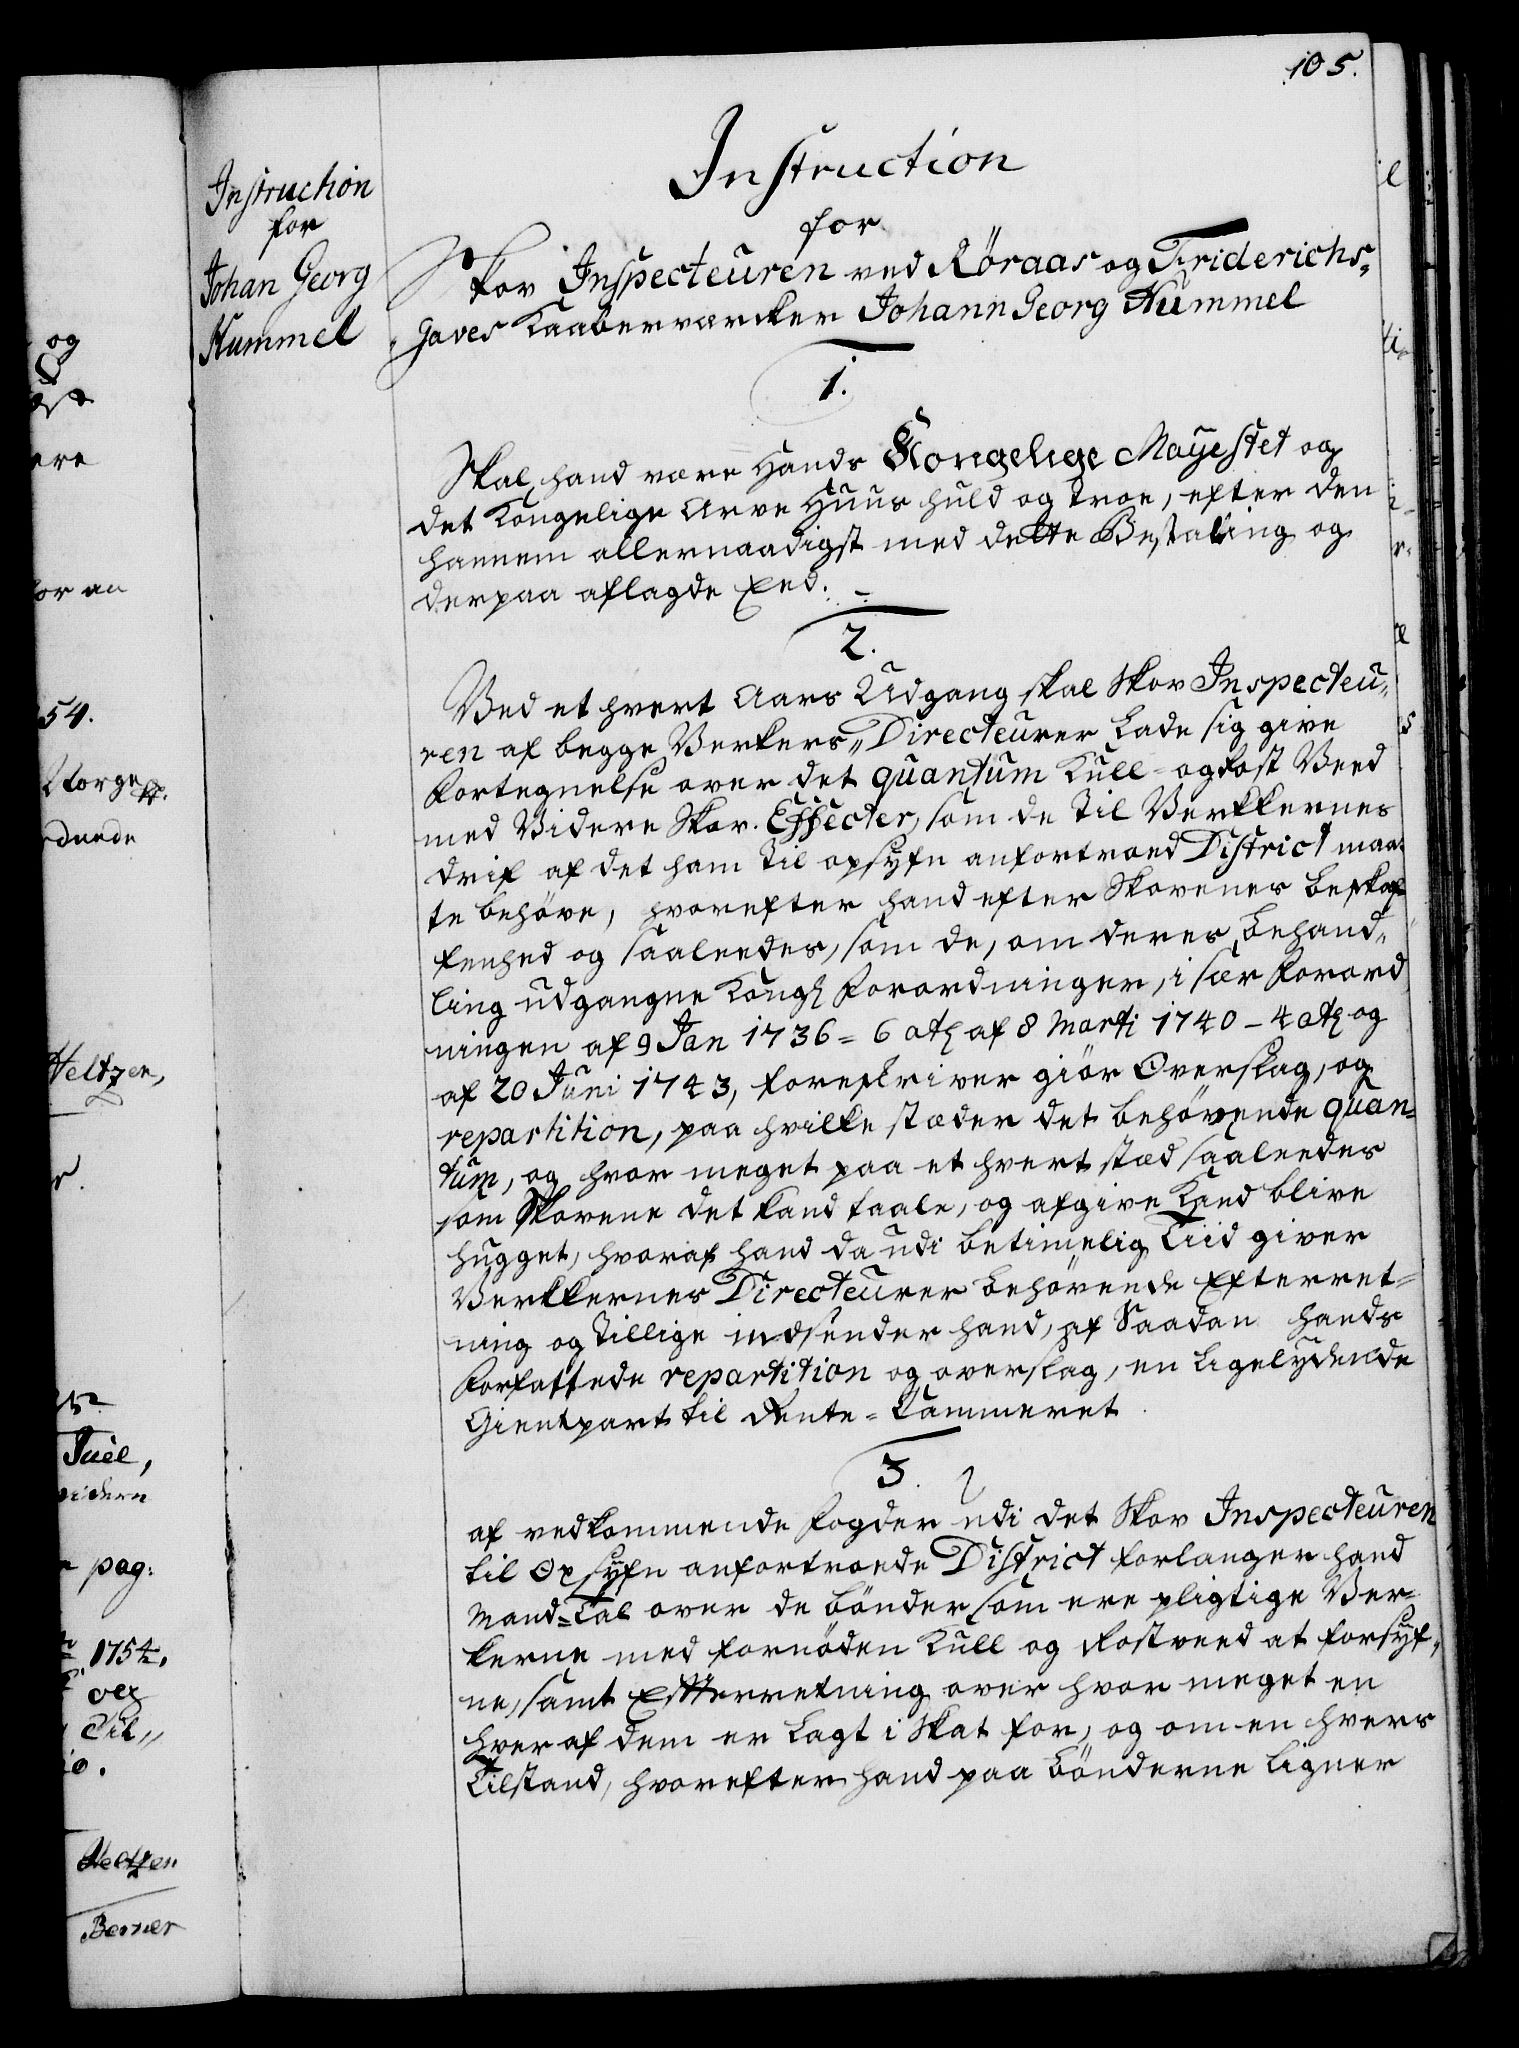 105.
Instruction
for
Johan Georg
Hummel
Instruction
for
Skov Inspecteuren ved Röraas og Friderichs„
Gaves Kaaberværcker Johann Georg Hummel
1.
Skal hand være Hands Kongelige Mayestet og
det Kongelige Arve Huus huld og troe, efter den
hannem allernaadigst med deelte Bestalling og
derpaa aflagde Eed.
2.
Ved et hvert Aars Udgang skal Skov Inspecteu„
ren af begge Verkers„ Directeurer Lade sig give
Fortegnelse over det quantum Kull- og Rost Veed
med Videre Skov. Effecter, som de til Verkkernes
drif af det ham til opsyfn anfortroed District maa„
te behöve, hvorefter hand efter Skovenes beskaf„
fenhed og saaleedes, som de, om deres Behand„
ling udgangne Kongl Forordninger, i sær Forord
ningen af 9 Jan 1736 = 6 Oct af 8 Marti 1740 - 4 Oct og
af 20 Juni 1743, foreskriver giör Overslag, og
repartition, paa hvilke stæder det behövende quan„
tum, og hvor meget paa et hvert stæd saaleedes
som Skovene det kand taale, og afgive kand blive
hugget, hvoraf hand da udi betimelig Tiid giver
Verkkernes Directeurer behövende Efterret„
ning og tillige indsender hand, af Saadan hands
Forfattede repartition og overslag, en Ligelydende
Gienpart til Rente-Cammeret.
3.
af vedkommende Fogder udi det Skov Inspecteuren
til Opsyfn anfortroede District forlanger hand
Mand-Tal over de bönder som ere pligtige Ver„
kerne med fornöden Kull og Rostveed at forsyf„
ne, samt Efterretning over hvor meget en
hver af dem er Lagt i Skat for, og om en hvers
Tilstand, hvorefter hand paa Bönderne Ligner
og
ere
54.
Norge
Heltzen,
Juel,
pag:
1754.
Til„
Heltzen